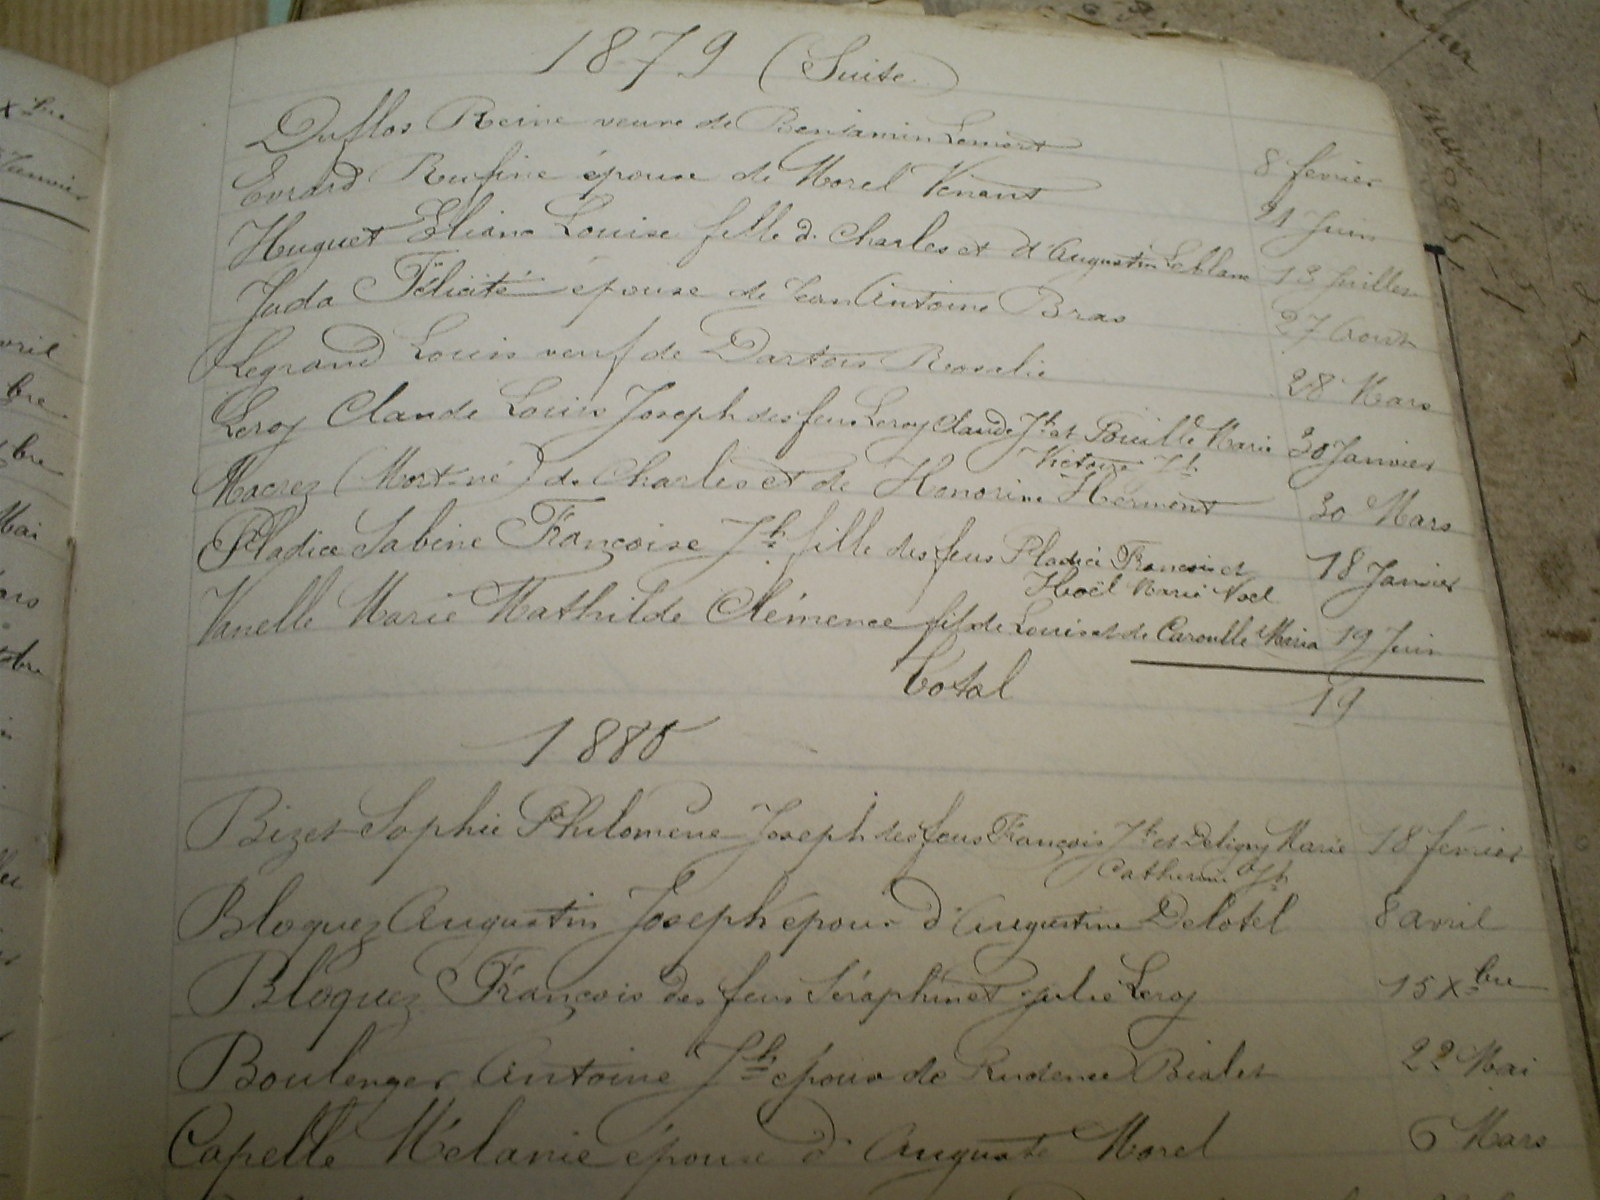 1879 (Suite)
Duflos Reine veuve de Benjamin Lemort
8 février
Evrard Rufine épouse de Morel Venant
21 Juin
Huguet Éliane Louise fille de Charles et d'Augustin Leblanc
13 Juillet
Juda Félicité épouse de Jean Antoine Bras
27 Août
Legrand Louis veuf de Dartois Rosalie
28 Mars
Leroy Claude Louis Joseph des feus Leroy Claude Jh et Pouille Marie
30 Janvier
Victoire Jh
Macrez (Mort-né) de Charles et de Honorine Herment
30 Mars
Pladiée Sabine Françoise Jh fille des feus François et
18 Janvier
Hoël Marie Noel
Vanelle Marie Mathilde Clémence fil. de Louis et de Caroulle Maria
19 Juin
Total 19
1880
Bizet Sophie Philomène Joseph des feus François Jh et Deligny Marie
18 février
Catherine Jh
Bloquez Augustin Joseph époux d'Augustine Delotel
8 avril
Bloquez François des feus Séraphin et Julie Leroy
15 Xbre
Boulenger Antoine Jh époux de Prudence Bialet
22 Mai
Capelle Mélanie épouse d'Auguste Morel
6 Mars
Xbre
Janvier
bre
bre
Mai